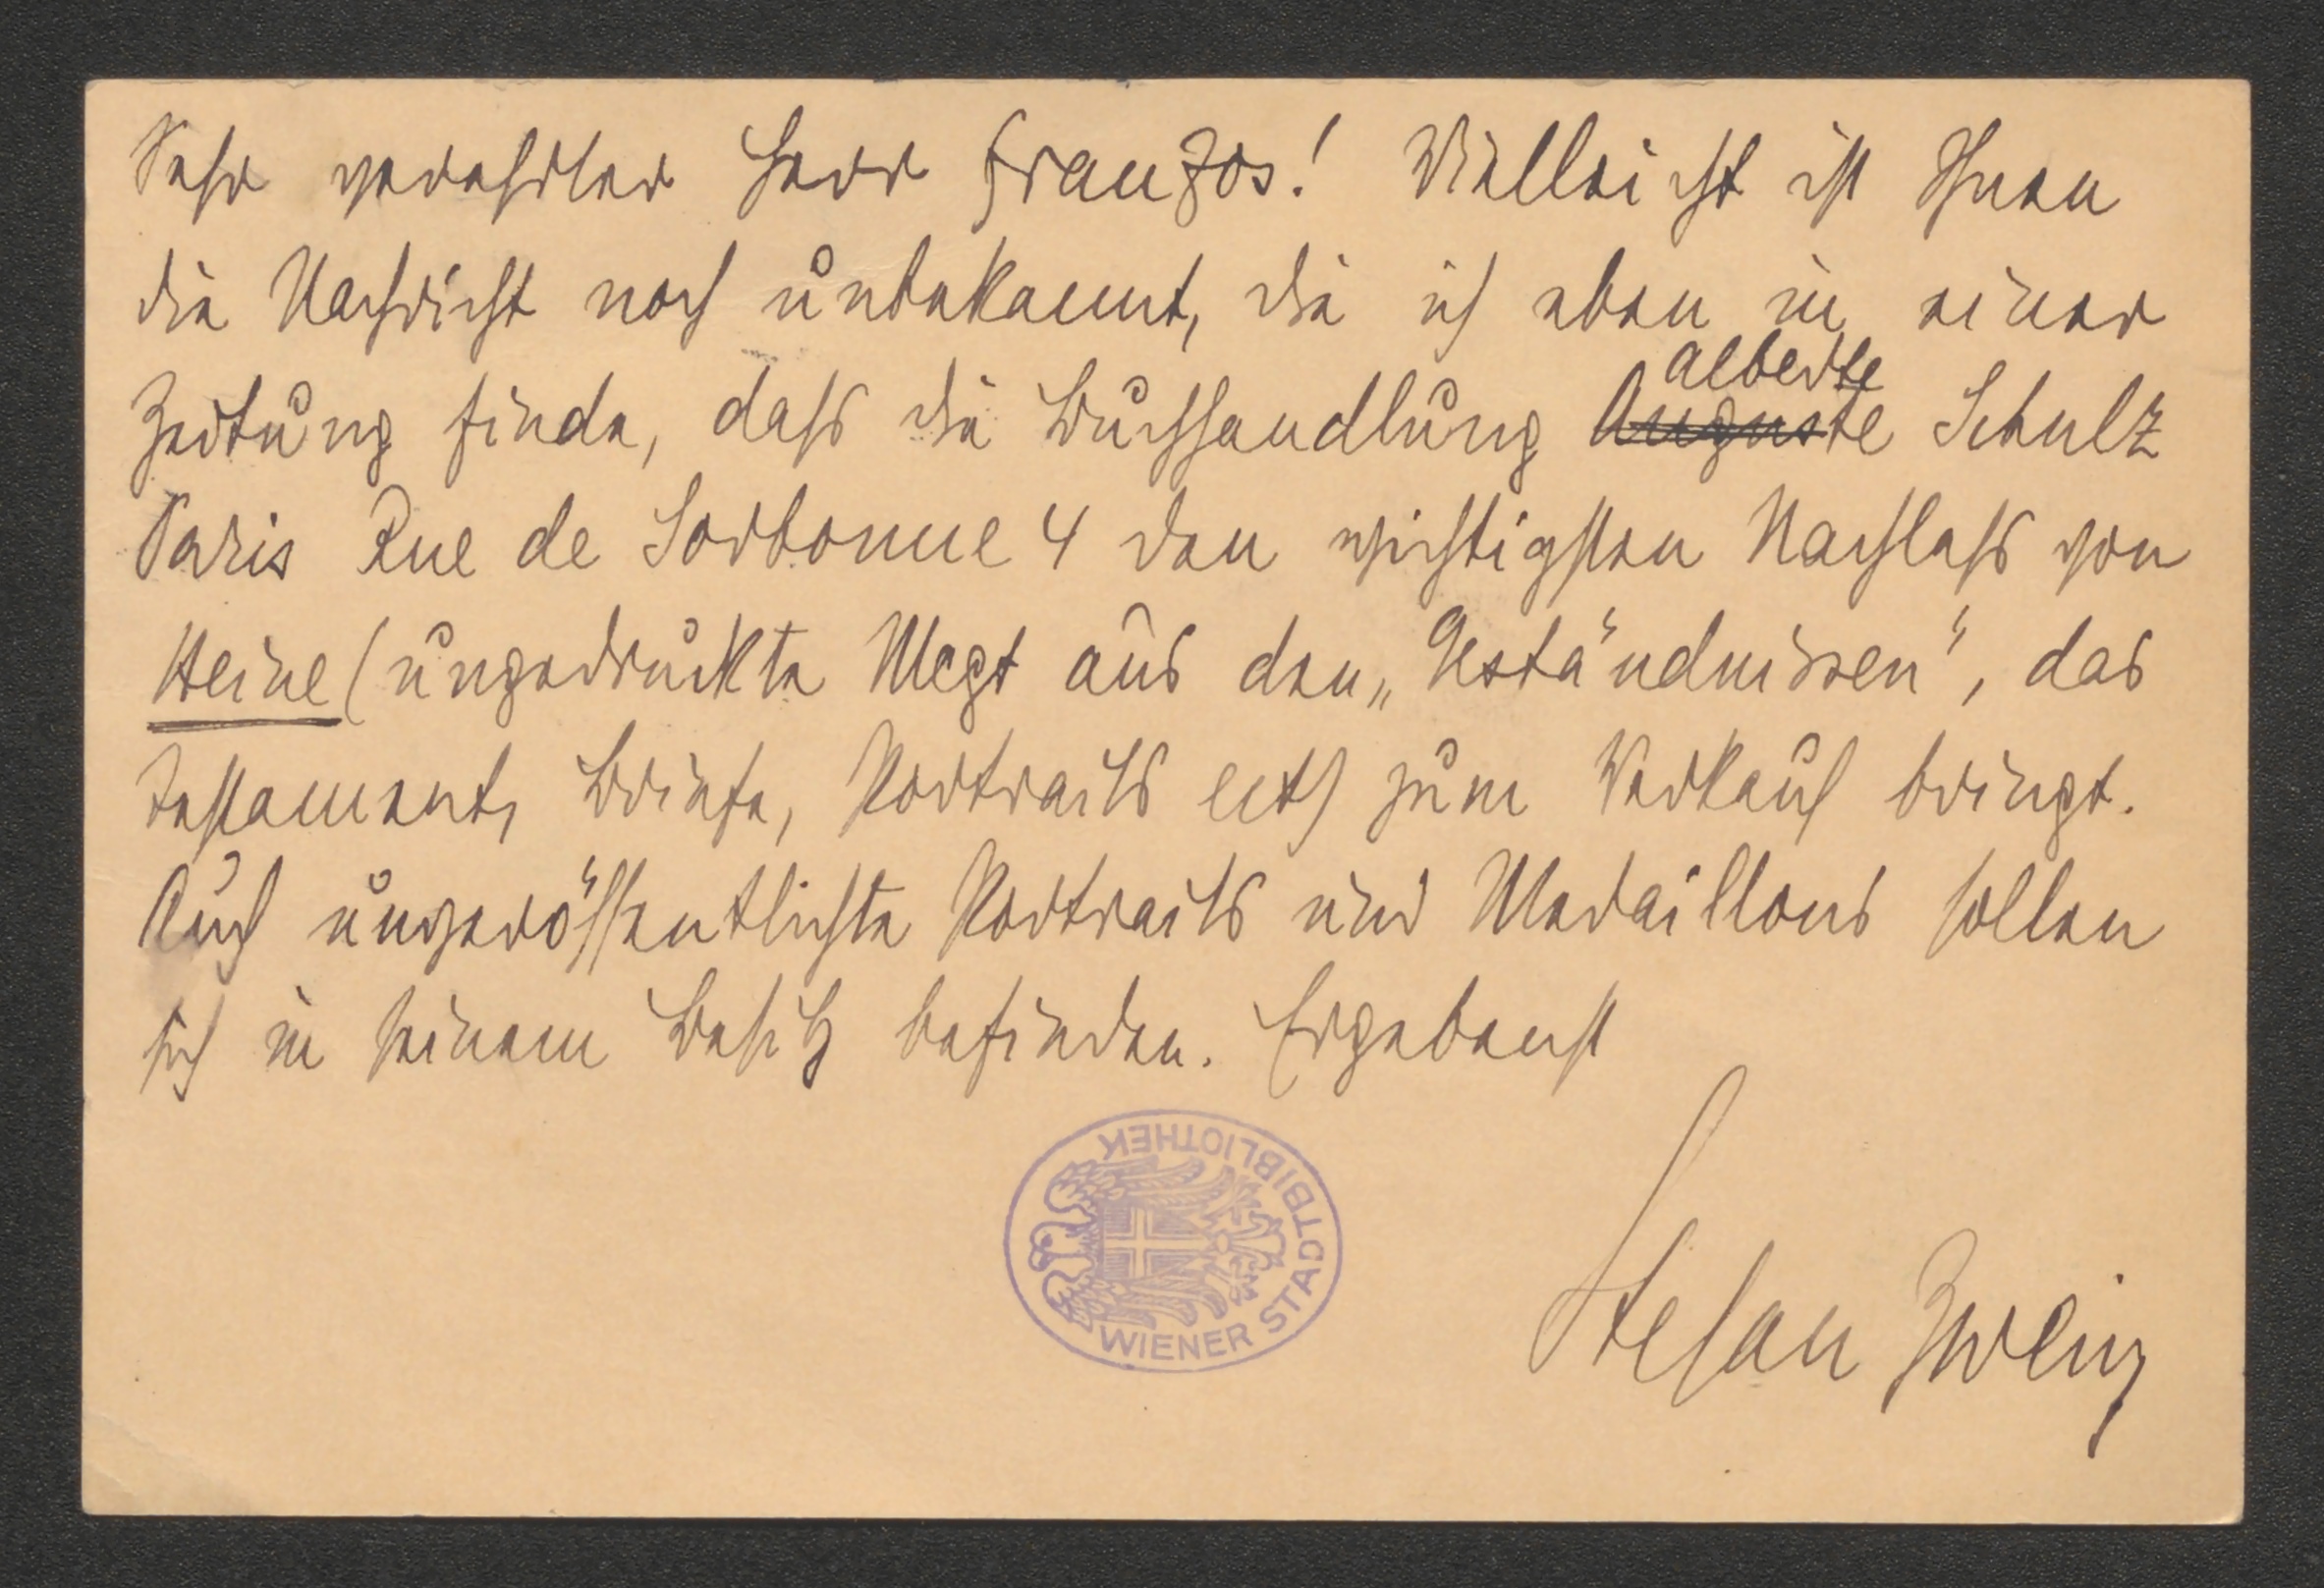 Sehr verehrter Herr Franzos! Vielleicht ist Ihnen
die Nachricht noch unbekannt, die ich eben in einer
Zeitung finde, dass die Buchhandlung Auguste Alberte Schulz
Paris Rue de Sorbonne 4 den wichtigsten Nachlass von
Heine (ungedruckte Mcpt aus den „Geständnissen“, das
Testament, Briefe, Portraits ect) zum Verkauf bringt.
Auch unveröffentlichte Portraits und Medaillons sollen
sich in seinem Besitz befinden. Ergebenst
WIENER STADTBIBLIOTHEK
Stefan Zweig